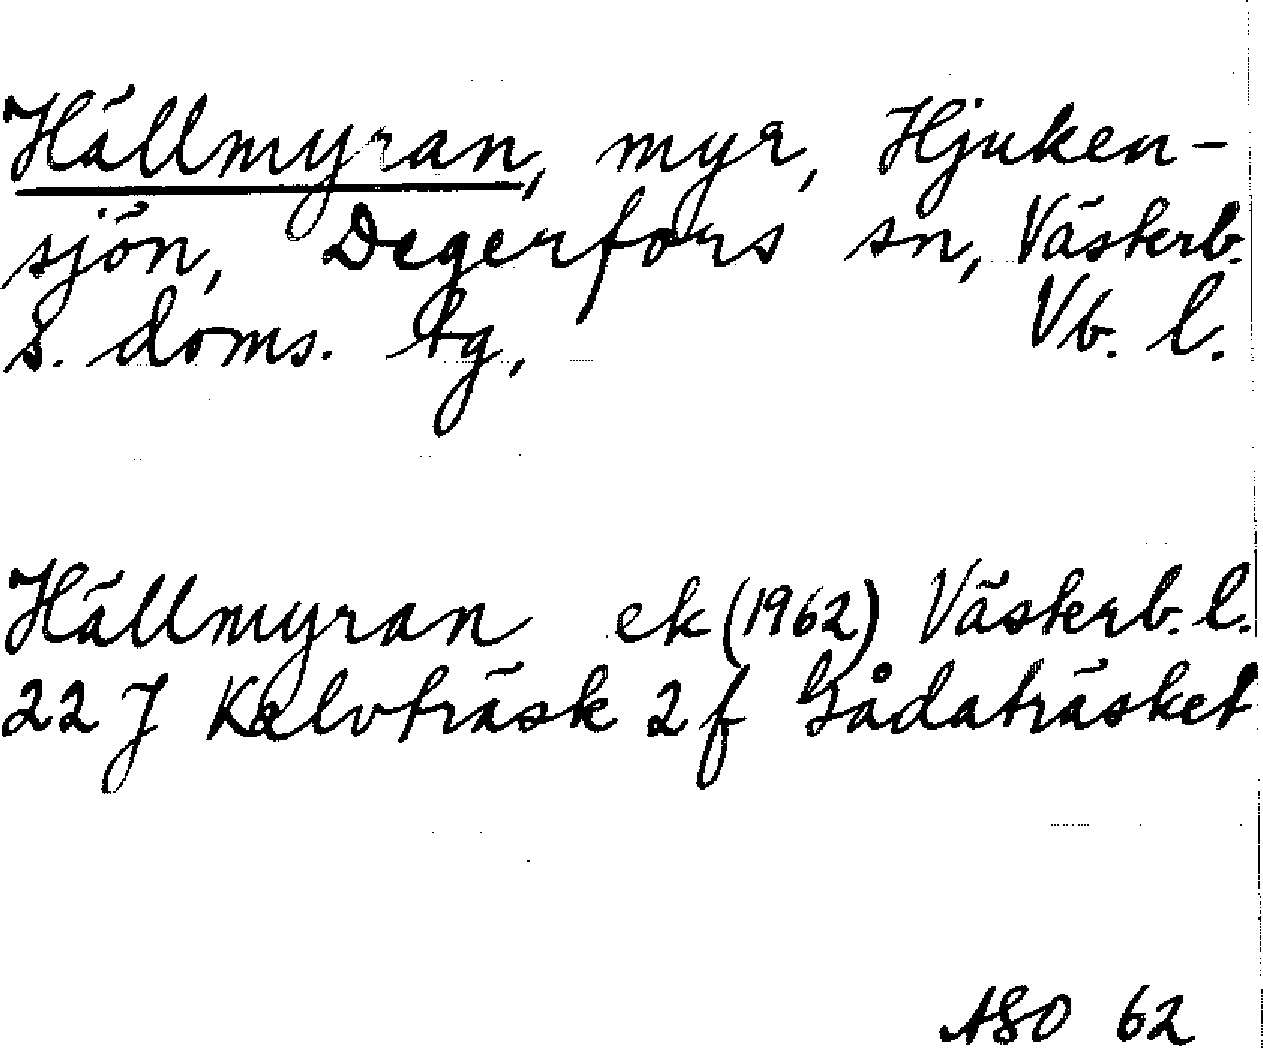 Hällmyran, myr, Hjuken-
sjön, Degerfors sn, Västerb.
s. doms. tg, Vb. l.
Hällmyran ek (1962) Västerb. l.
22 J Kalvträsk 2f Gådaträsket
ASO 62